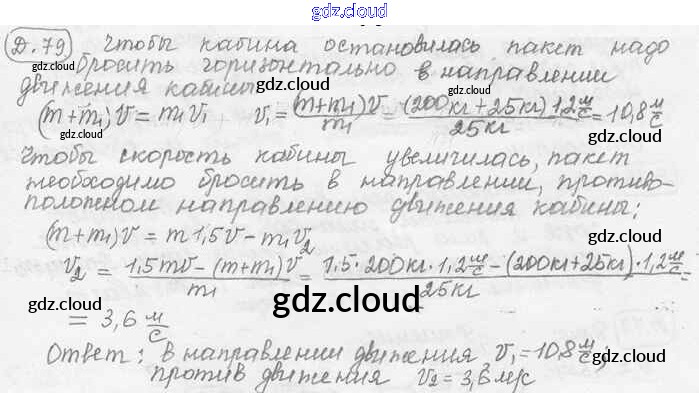 gdz.cloud
Д.79 Чтобы кабина остановилась пакет надо
бросить горизонтально в направлении
gdz.cloud gdz.cloud
движения кабины
(m+m₁)V = m₁V₁ V₁ = (m+m₁)V / m₁ = (200кг+25кг)1,2 м/с / 25кг = 10,8 м/с
gdz.cloud gdz.cloud gdz.cloud
Чтобы скорость кабины увеличилась, пакет
gdz.cloud gdz.cloud
необходимо бросить в направлении, противо-
положном направлению движения кабины:
gdz.cloud
(m+m₁)V = m1,5V - m₁V₂
V₂ = 1,5mV-(m+m₁)V / m₁ = 1,5·200кг·1,2 м/с - (200кг+25кг)·1,2 м/с / 25кг =
gdz.cloud gdz.cloud
gdz.cloud
= 3,6 м/с
Ответ: в направлении движения V₁ = 10,8 м/с;
gdz.cloud gdz.cloud
против движения V₂ = 3,6 м/с
gdz.cloud